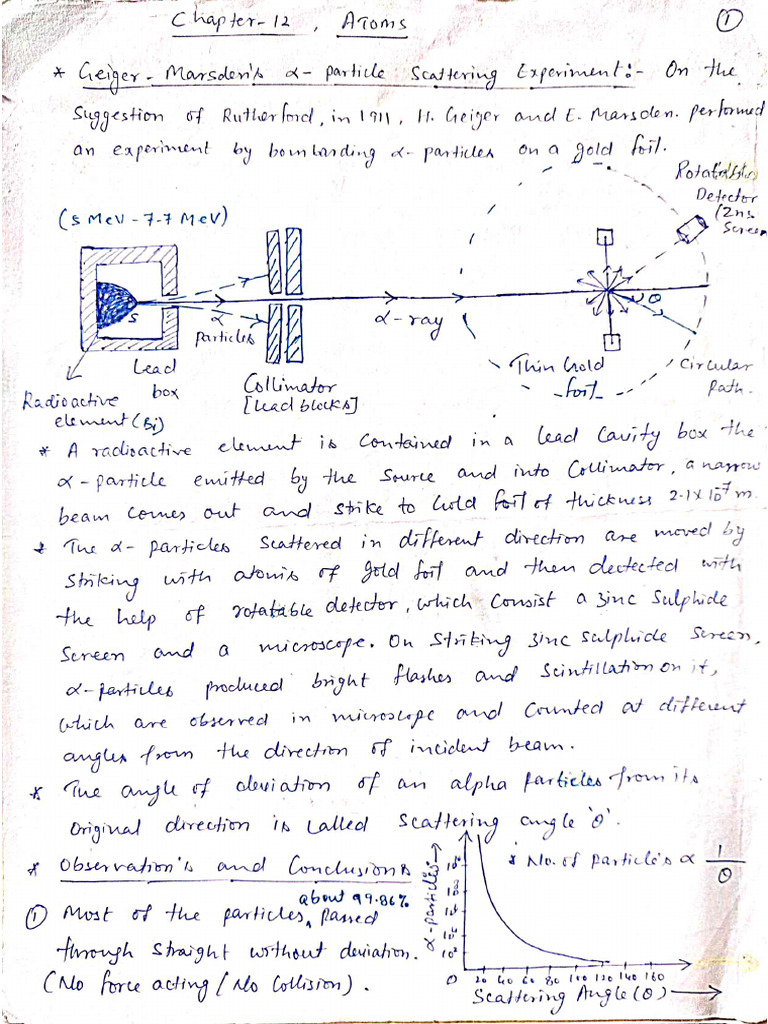 Chapter-12, Atoms
①
* Geiger-Marsden's α-particle Scattering Experiment:- On the
Suggestion of Rutherford, in 1911, H. Geiger and E. Marsden. performed
an experiment by bombarding α-particles on a gold foil.
Rotatable
Detector
(Zns
Screen
(5 MeV - 7.7 MeV)
S
α
particles
α-ray
θ
Lead
box
Collimator
[lead blocks]
Thin Gold
foil
Circular
Path.
Radioactive
element (Bi)
* A radioactive element is Contained in a lead Cavity box the
α-particle emitted by the Source and into Collimator, a narrow
beam comes out and strike to Gold foil of thickness 2.1×10⁻⁷ m.
* The α-particles Scattered in different direction are moved by
Striking with atoms of gold foil and then dectected with
the help of rotatable detector, which Consist a Zinc Sulphide
Screen and a microscope. On Striking Zinc Sulphide Screen,
α-particles produced bright flashes and Scintillation on it,
which are observed in microscope and Counted at different
angles from the direction of incident beam.
* The angle of deviation of an alpha particles from its
Original direction is Called Scattering angle 'θ'.
* Observation's and Conclusions
① Most of the particles, about 99.86% Passed
through Straight without deviation.
(No force acting / No Collision).
* No. of Particle's α 1/θ
α-particles →
10²
0 20 40 60 80 100 120 140 160
Scattering Angle (θ) →